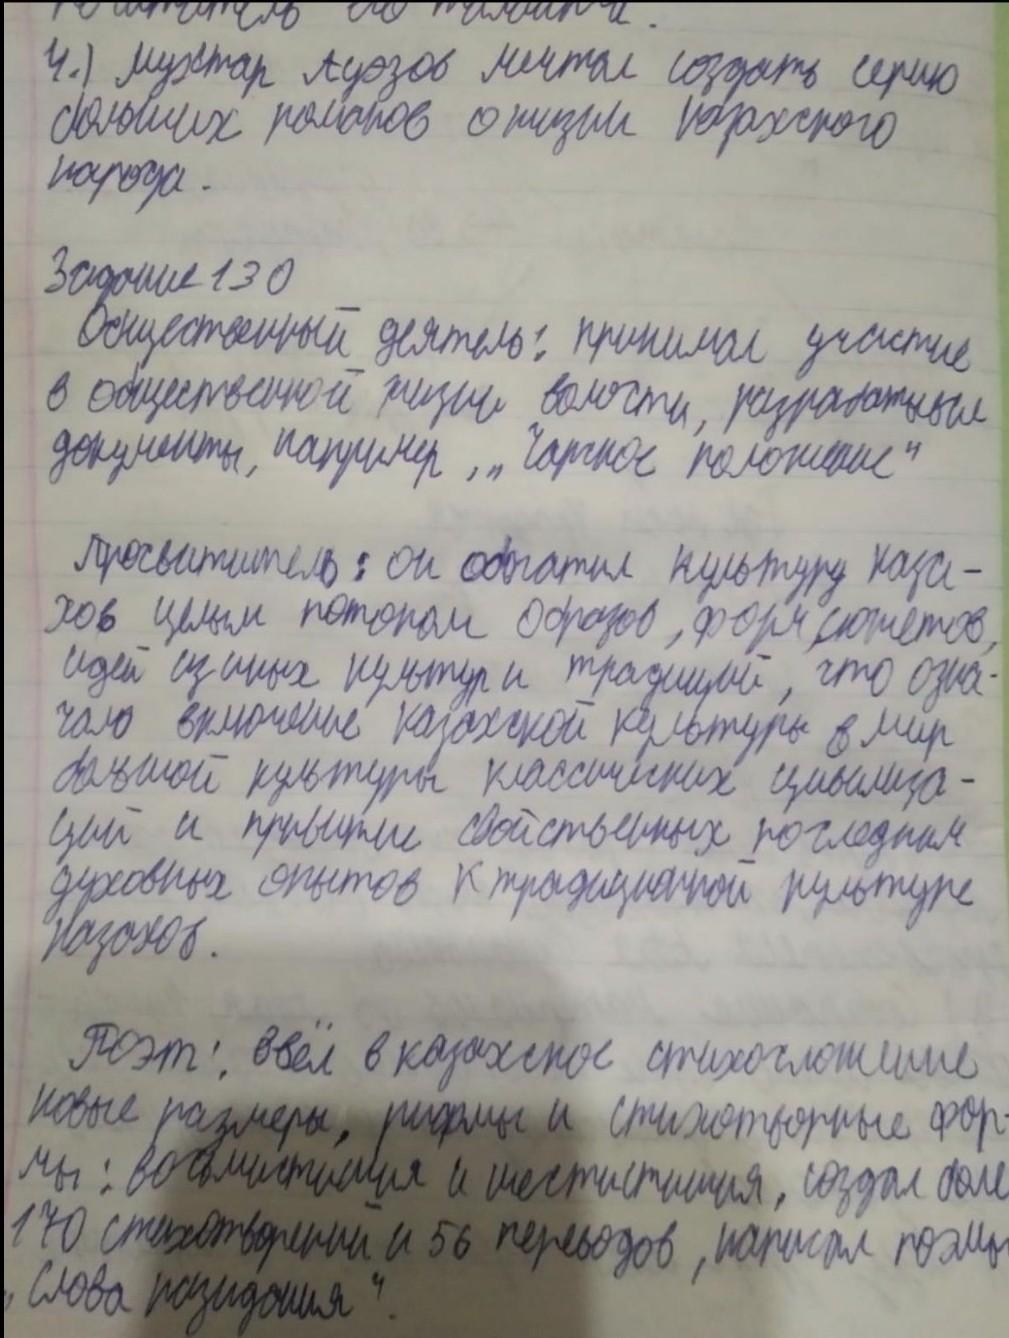 4.) Мухтар Ауэзов мечтал создать серию
больших романов о жизни казахского
народа.
Задание 130
Общественный деятель: принимал участие
в общественной жизни волости, разрабатывал
документы, например, „Чарское положение"
Просвититель: он обогатил культуру каза-
хов целым потоком образов, форм, сюжетов,
идей из иных культур и традиций, что озна-
чало включение казахской культуры в мир
большой культуры классических цивилиза-
ций и привитие свойственных последним
духовных опытов к традиционной культуре
казахов.
Поэт: ввёл в казахское стихосложение
новые размеры, рифмы и стихотворные фор-
мы: восьмистишия и шестистишия, создал боле
170 стихотворений и 56 переводов, написал поэмы
„Слова назидания".